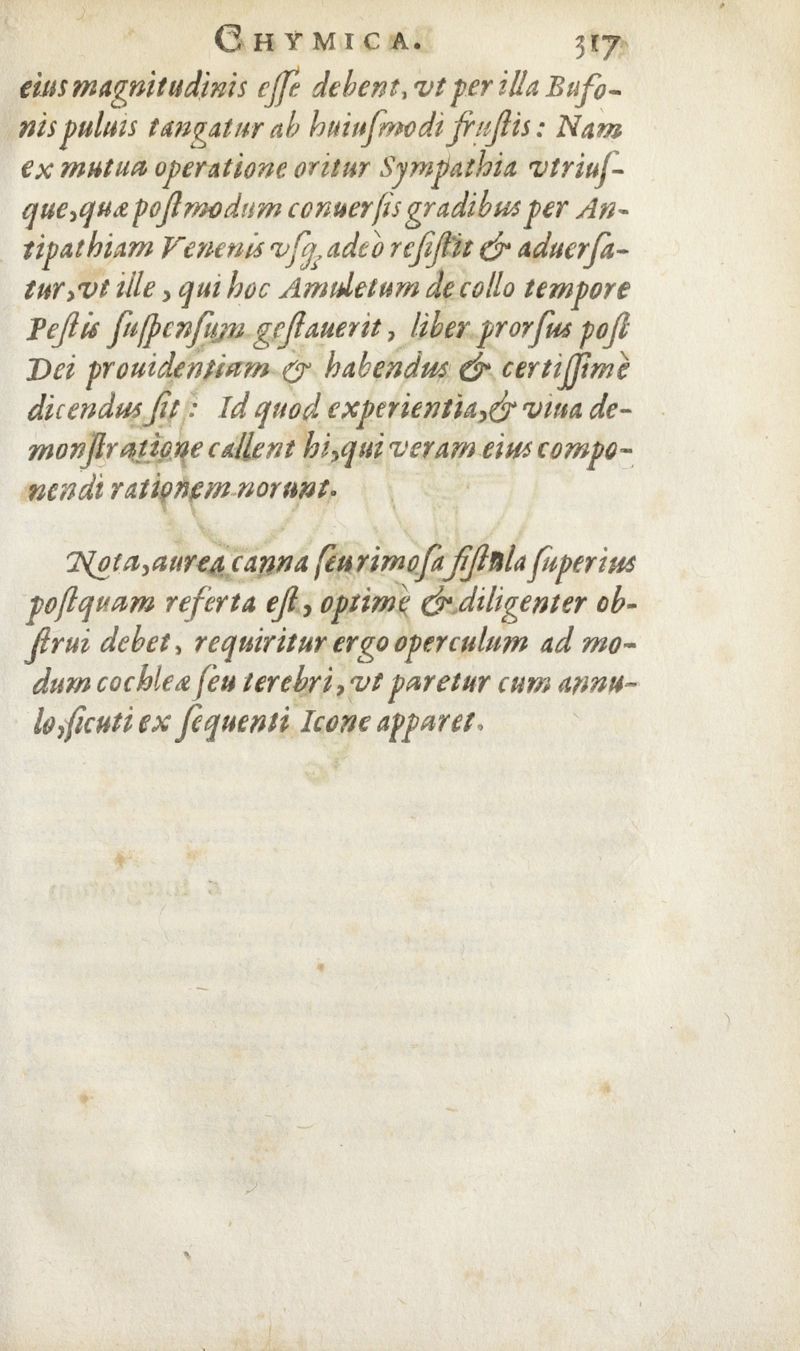 CHYMICA. 317
eius magnitudinis eſſe debent, vt per illa Bufo-
nis puluis tangatur ab huiuſmodi fruſtis: Nam
ex mutua operatione oritur Sympathia vtriuſ-
que, quæ poſtmodum conuerſis gradibus per An-
tipathiam Venenis vſq; adeò reſiſtit & aduerſa-
tur, vt ille, qui hoc Amuletum de collo tempore
Peſtis ſuſpenſum geſtauerit, liber prorſus poſt
Dei prouidentiam & habendus & certiſſimè
dicendus ſit: Id quod experientia, & viua de-
monſtratione callent hi, qui veram eius compo-
nendi rationem norunt.
Nota, aurea canna ſeu rimoſa fiſtula ſuperius
poſtquam referta eſt, optimè & diligenter ob-
ſtrui debet, requiritur ergo operculum ad mo-
dum cochleæ ſeu terebri, vt paretur cum annu-
lo, ſicuti ex ſequenti Icone apparet.